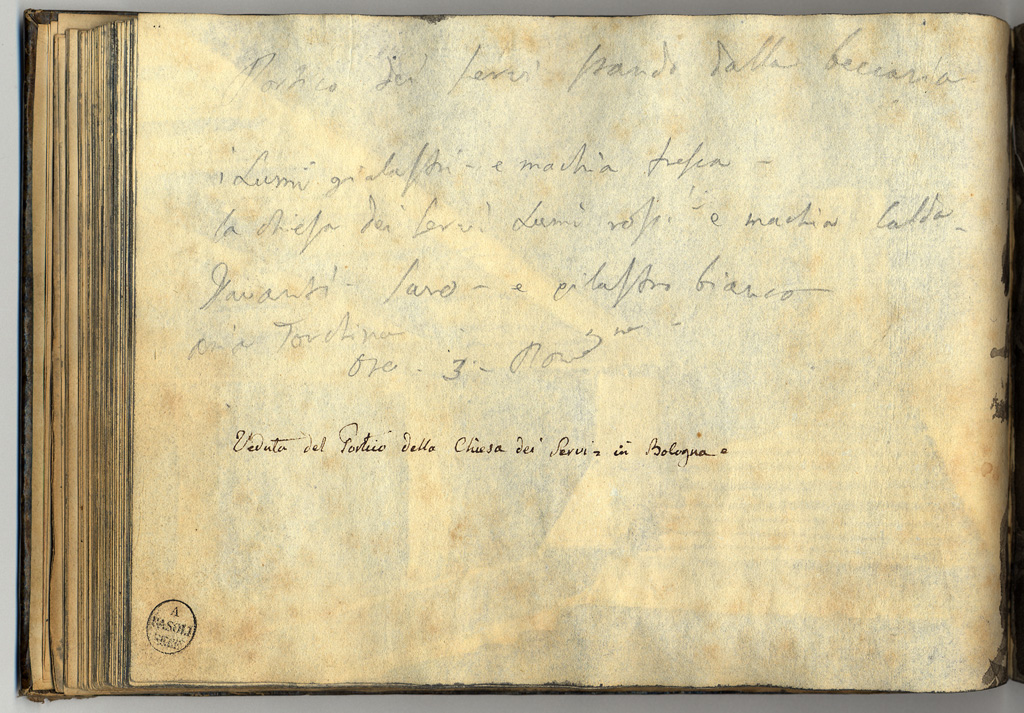 Portico dei Servi stando dalla beccaria
i Lumi gialastri - e machia fresca -
la chiesa dei Servi Lumi rossi e machia Calda -
Davanti - Scuro - e pilastro bianco
aria Torchina
ore - 3 -
Veduta del Portico della Chiesa dei Servi = in Bologna =
A
FASOLI